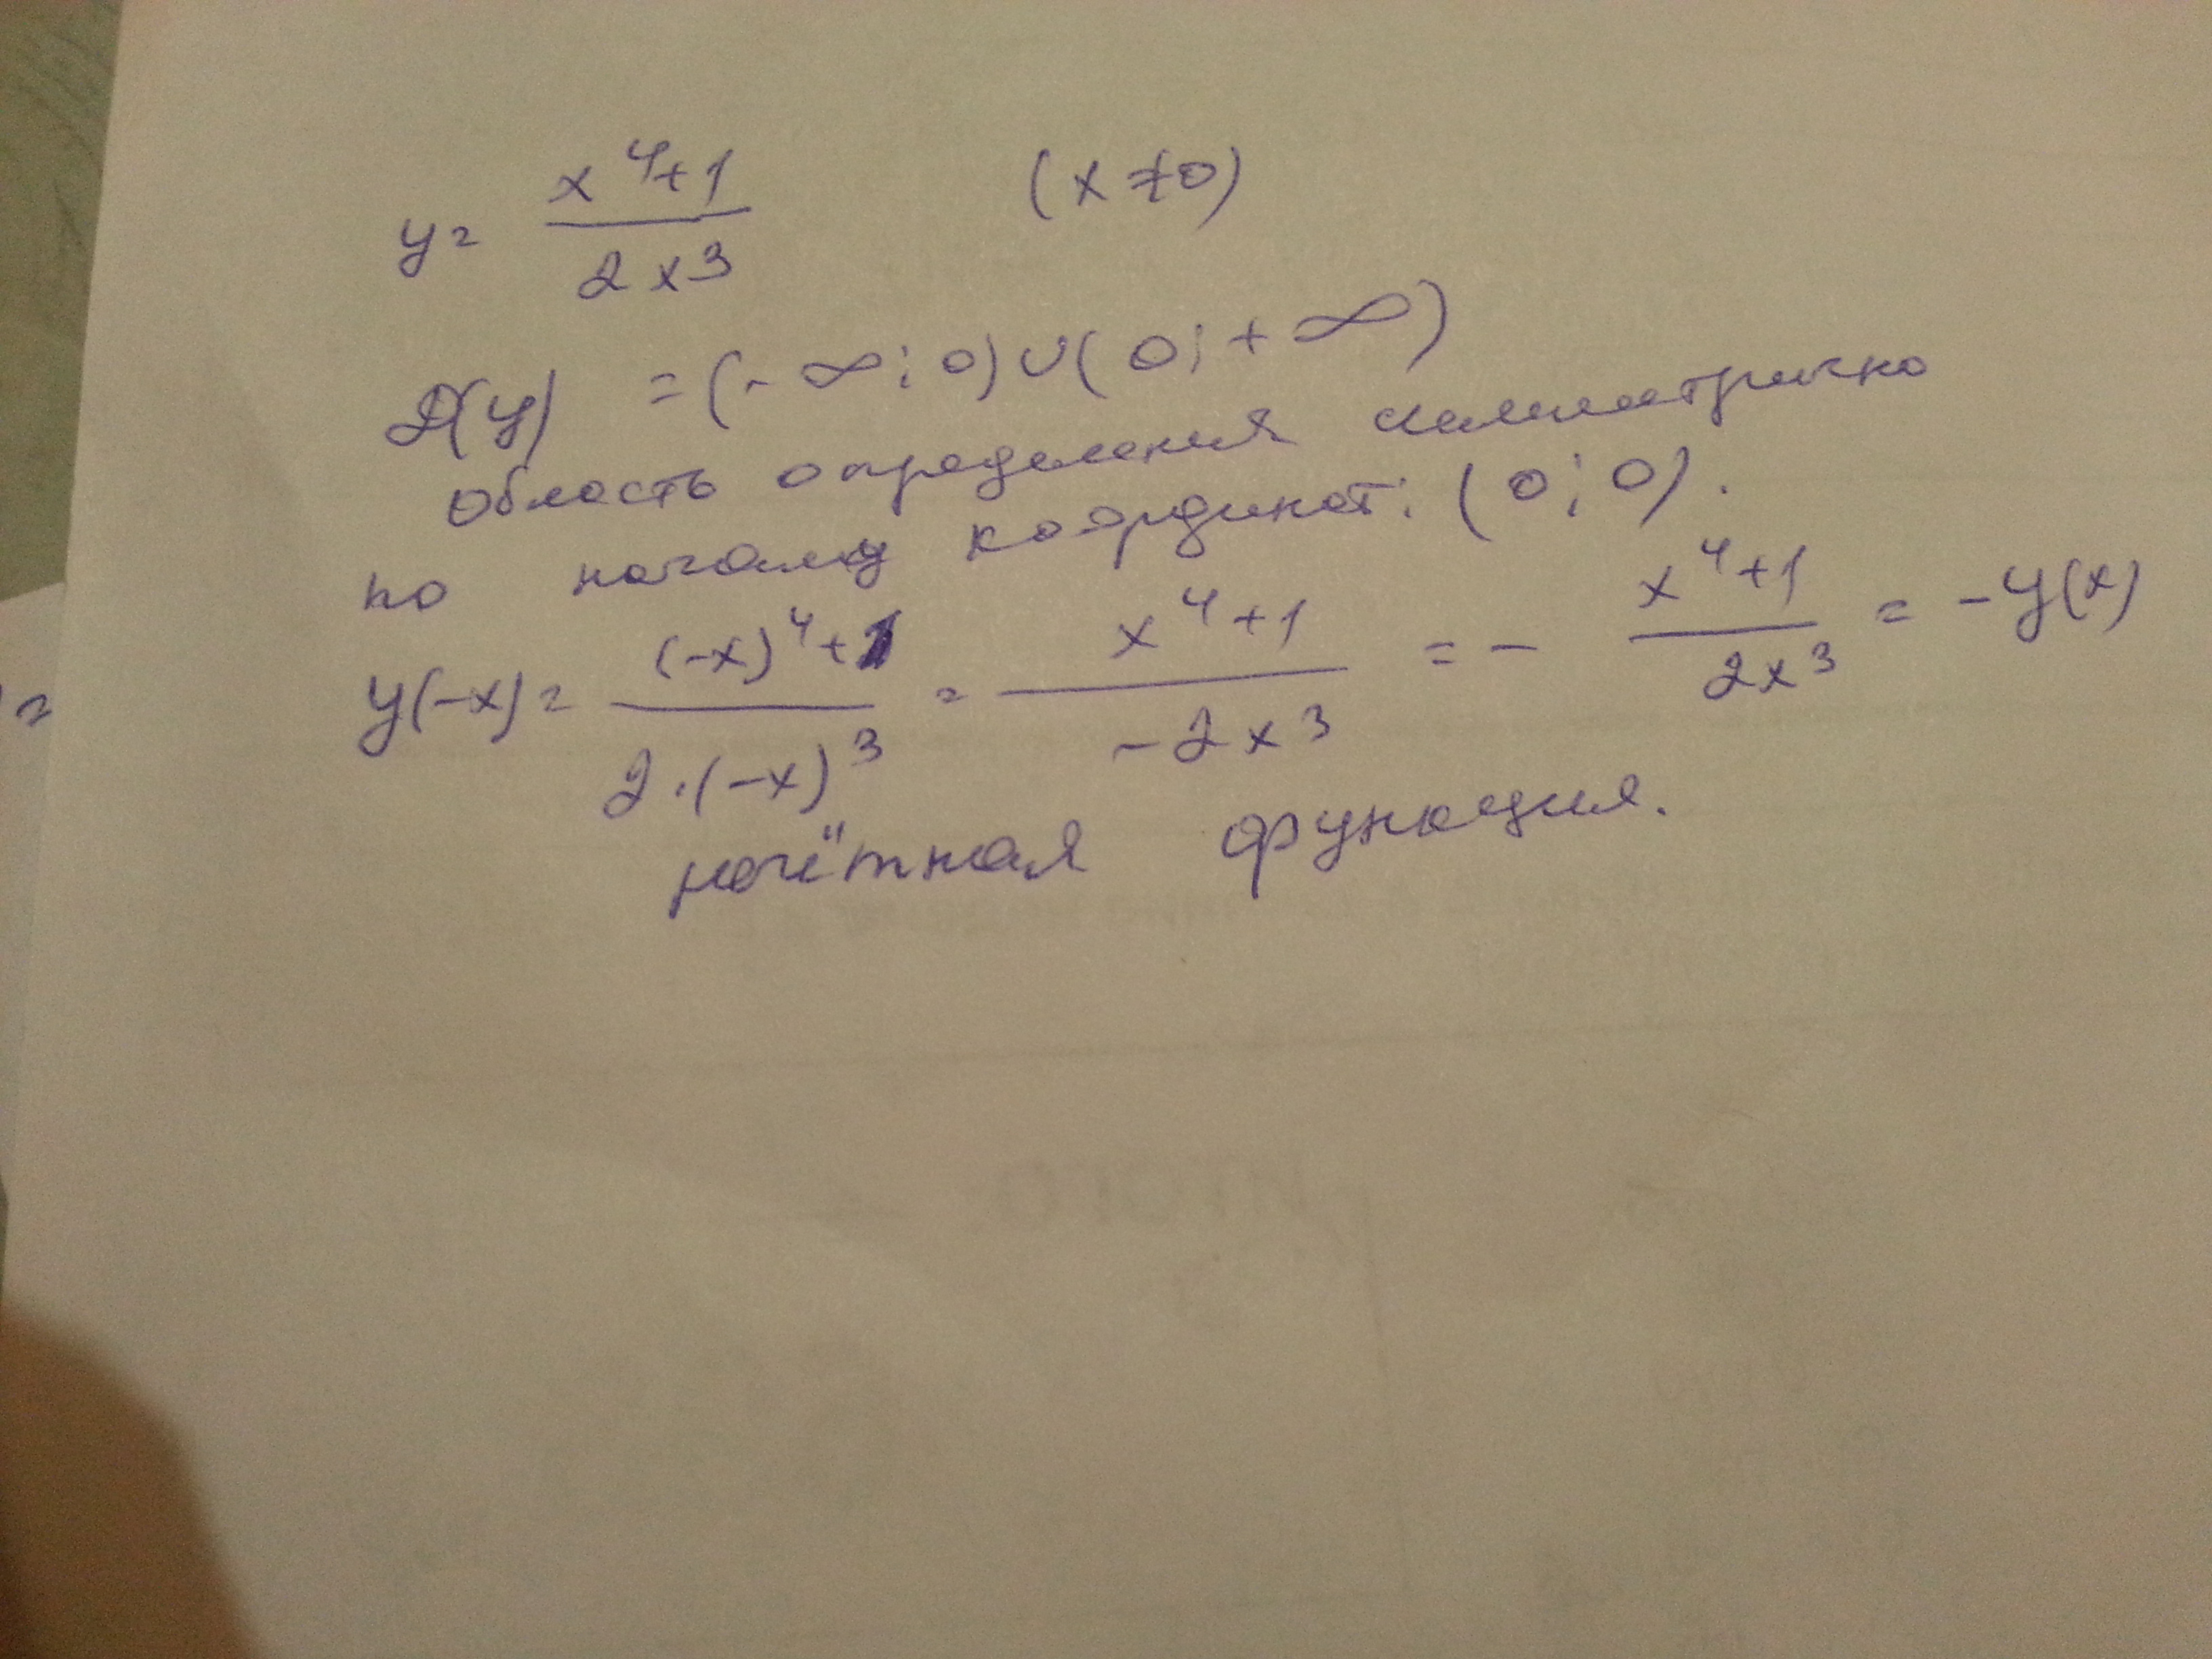 y = (x^4+1)/(2x^3) (x ≠ 0)
D(y) = (-∞; 0) ∪ (0; +∞)
Область определения симметрично
по началу координат: (0; 0).
y(-x) = ((-x)^4+1)/(2·(-x)^3) = (x^4+1)/(-2x^3) = - (x^4+1)/(2x^3) = -y(x)
нечётная функция.
=